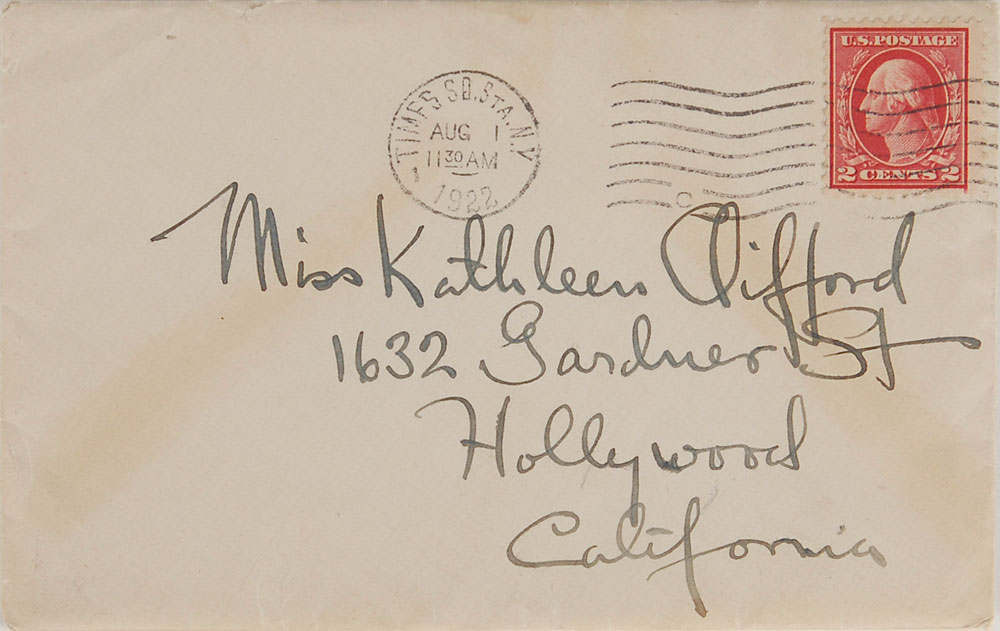 U.S. POSTAGE
2 CENTS 2
TIMES SQ. STA. N.Y.
AUG 1
11 30 AM
1922
C
Miss Kathleen Clifford
1632 Gardner St
Hollywood
California